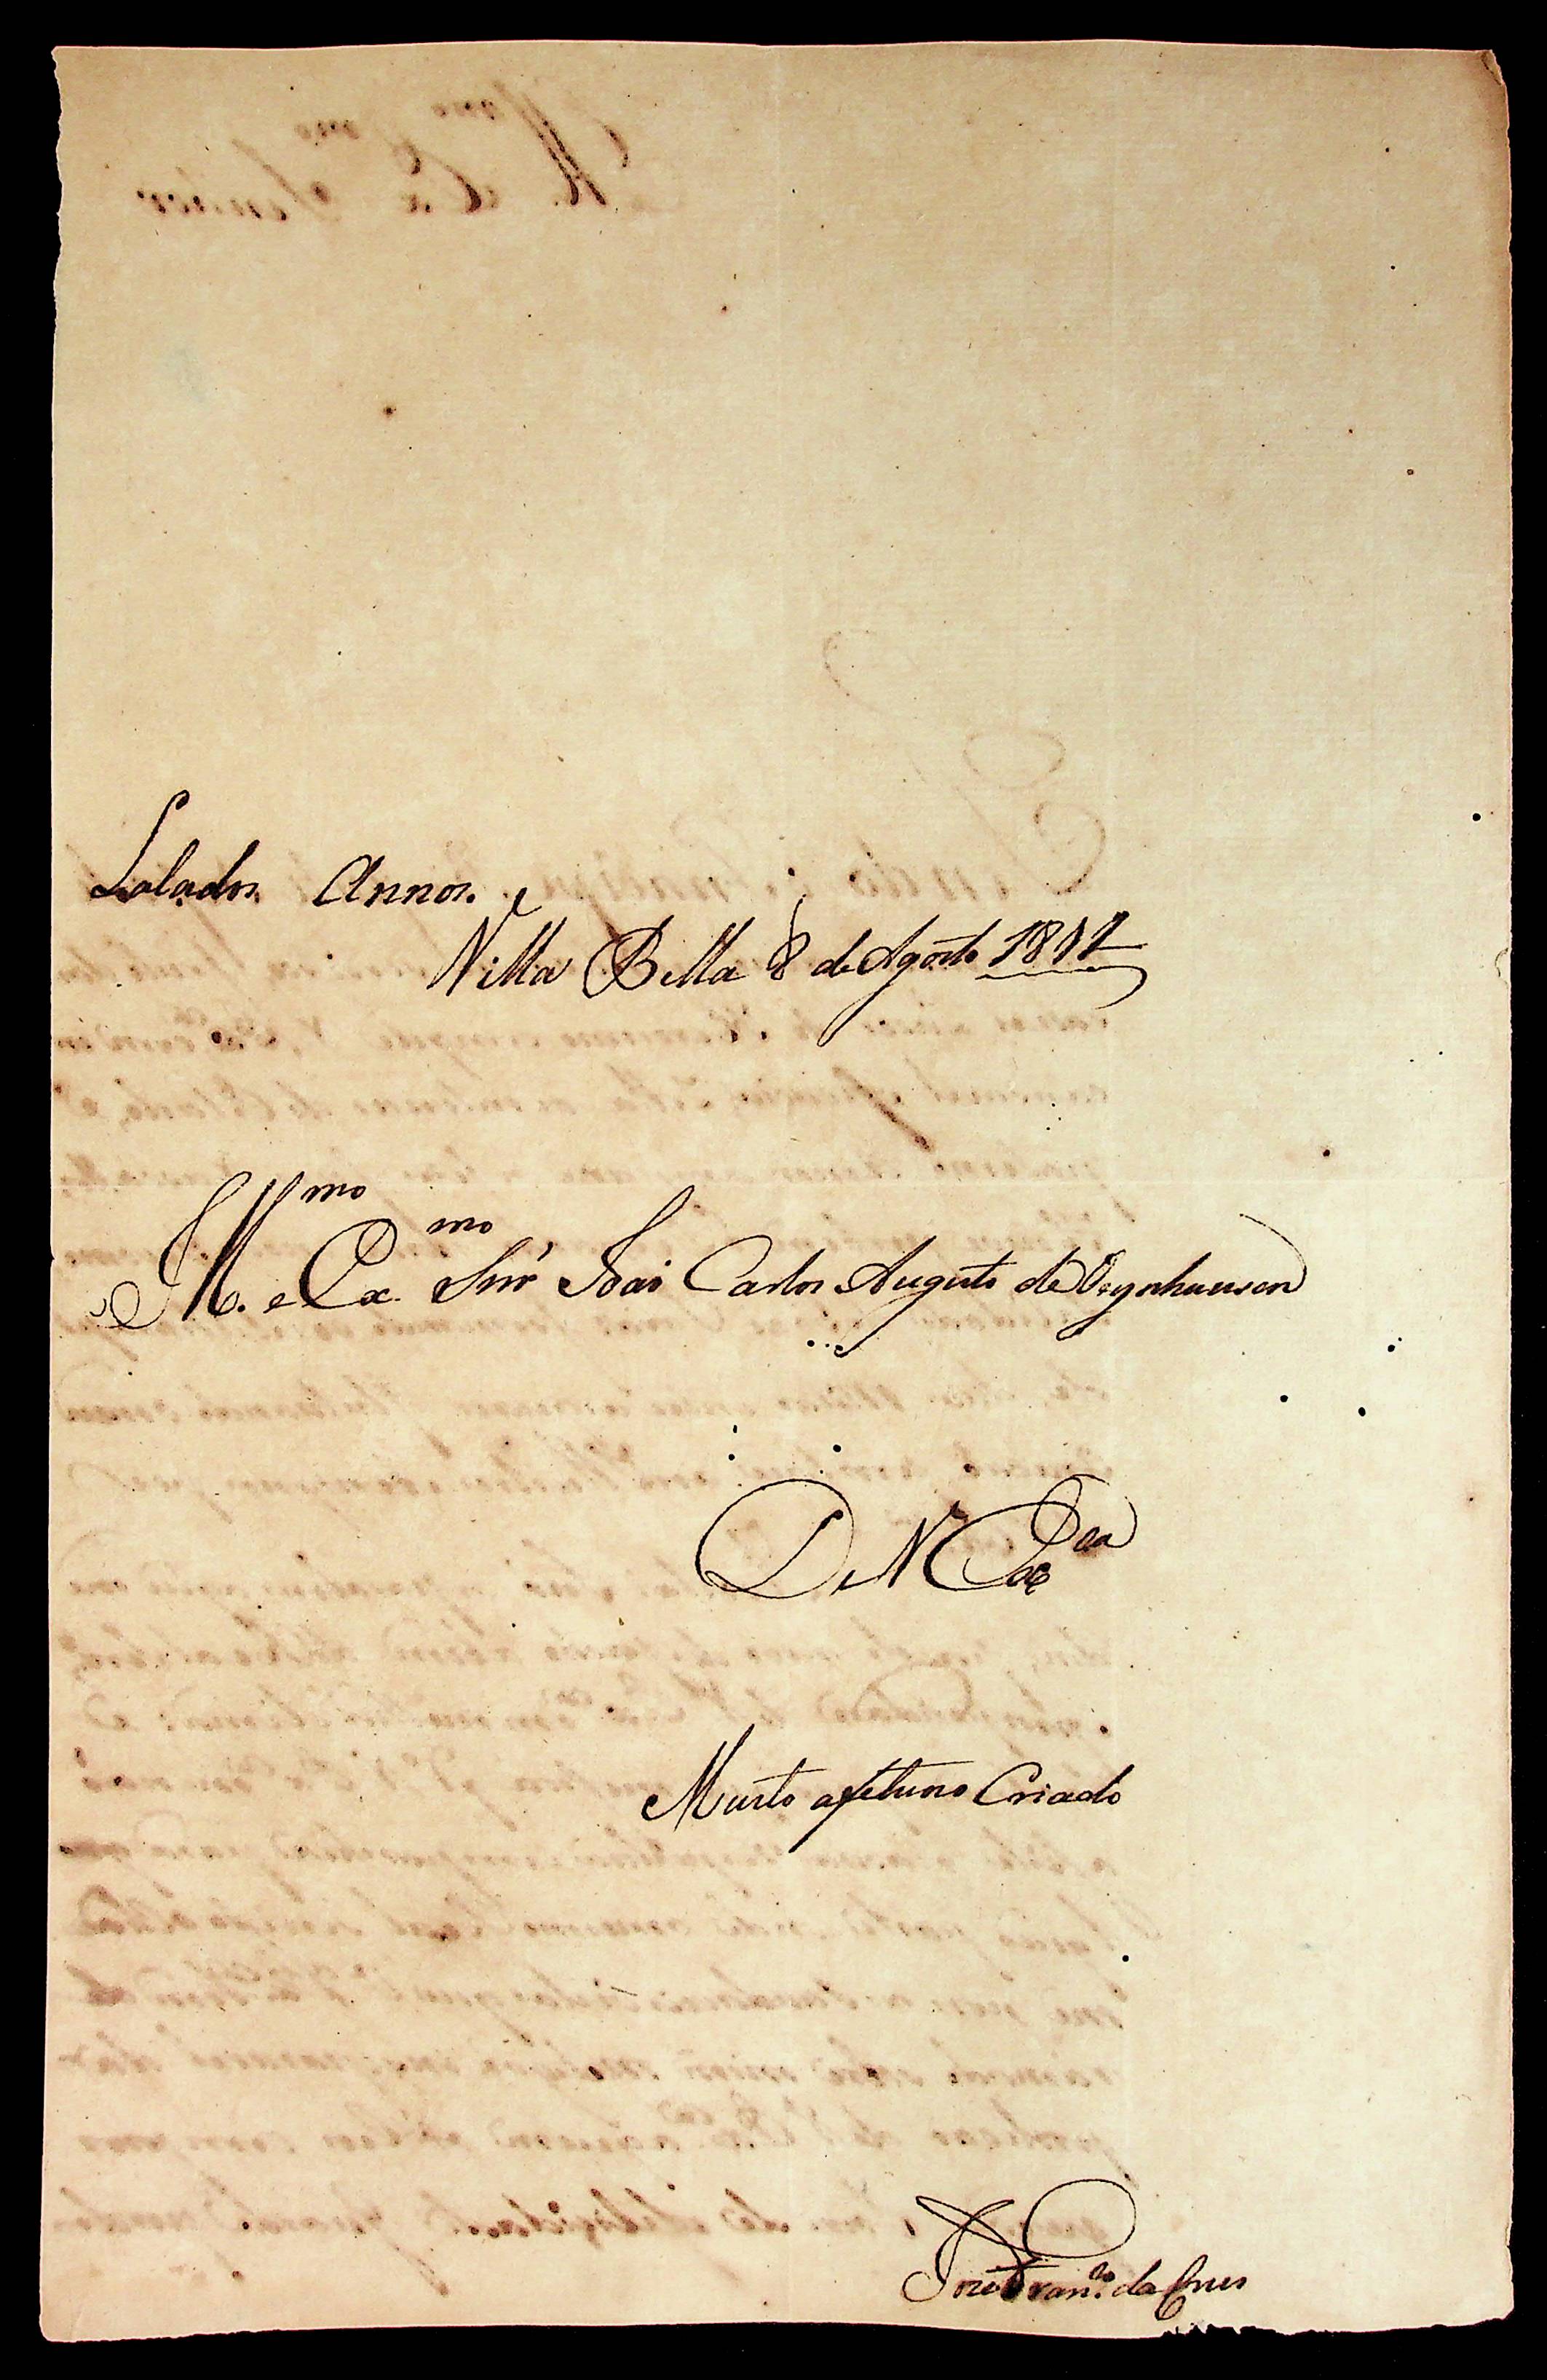 Lalados Annos.
Villa Bella 8 de Agosto 1811
Ill.mo e Ex.mo Snr' Joaõ Carlos Augusto de Oeynhausen
De V Ex.cia
Muito afetuozo Criado
Jozé Fran.co da Cruz